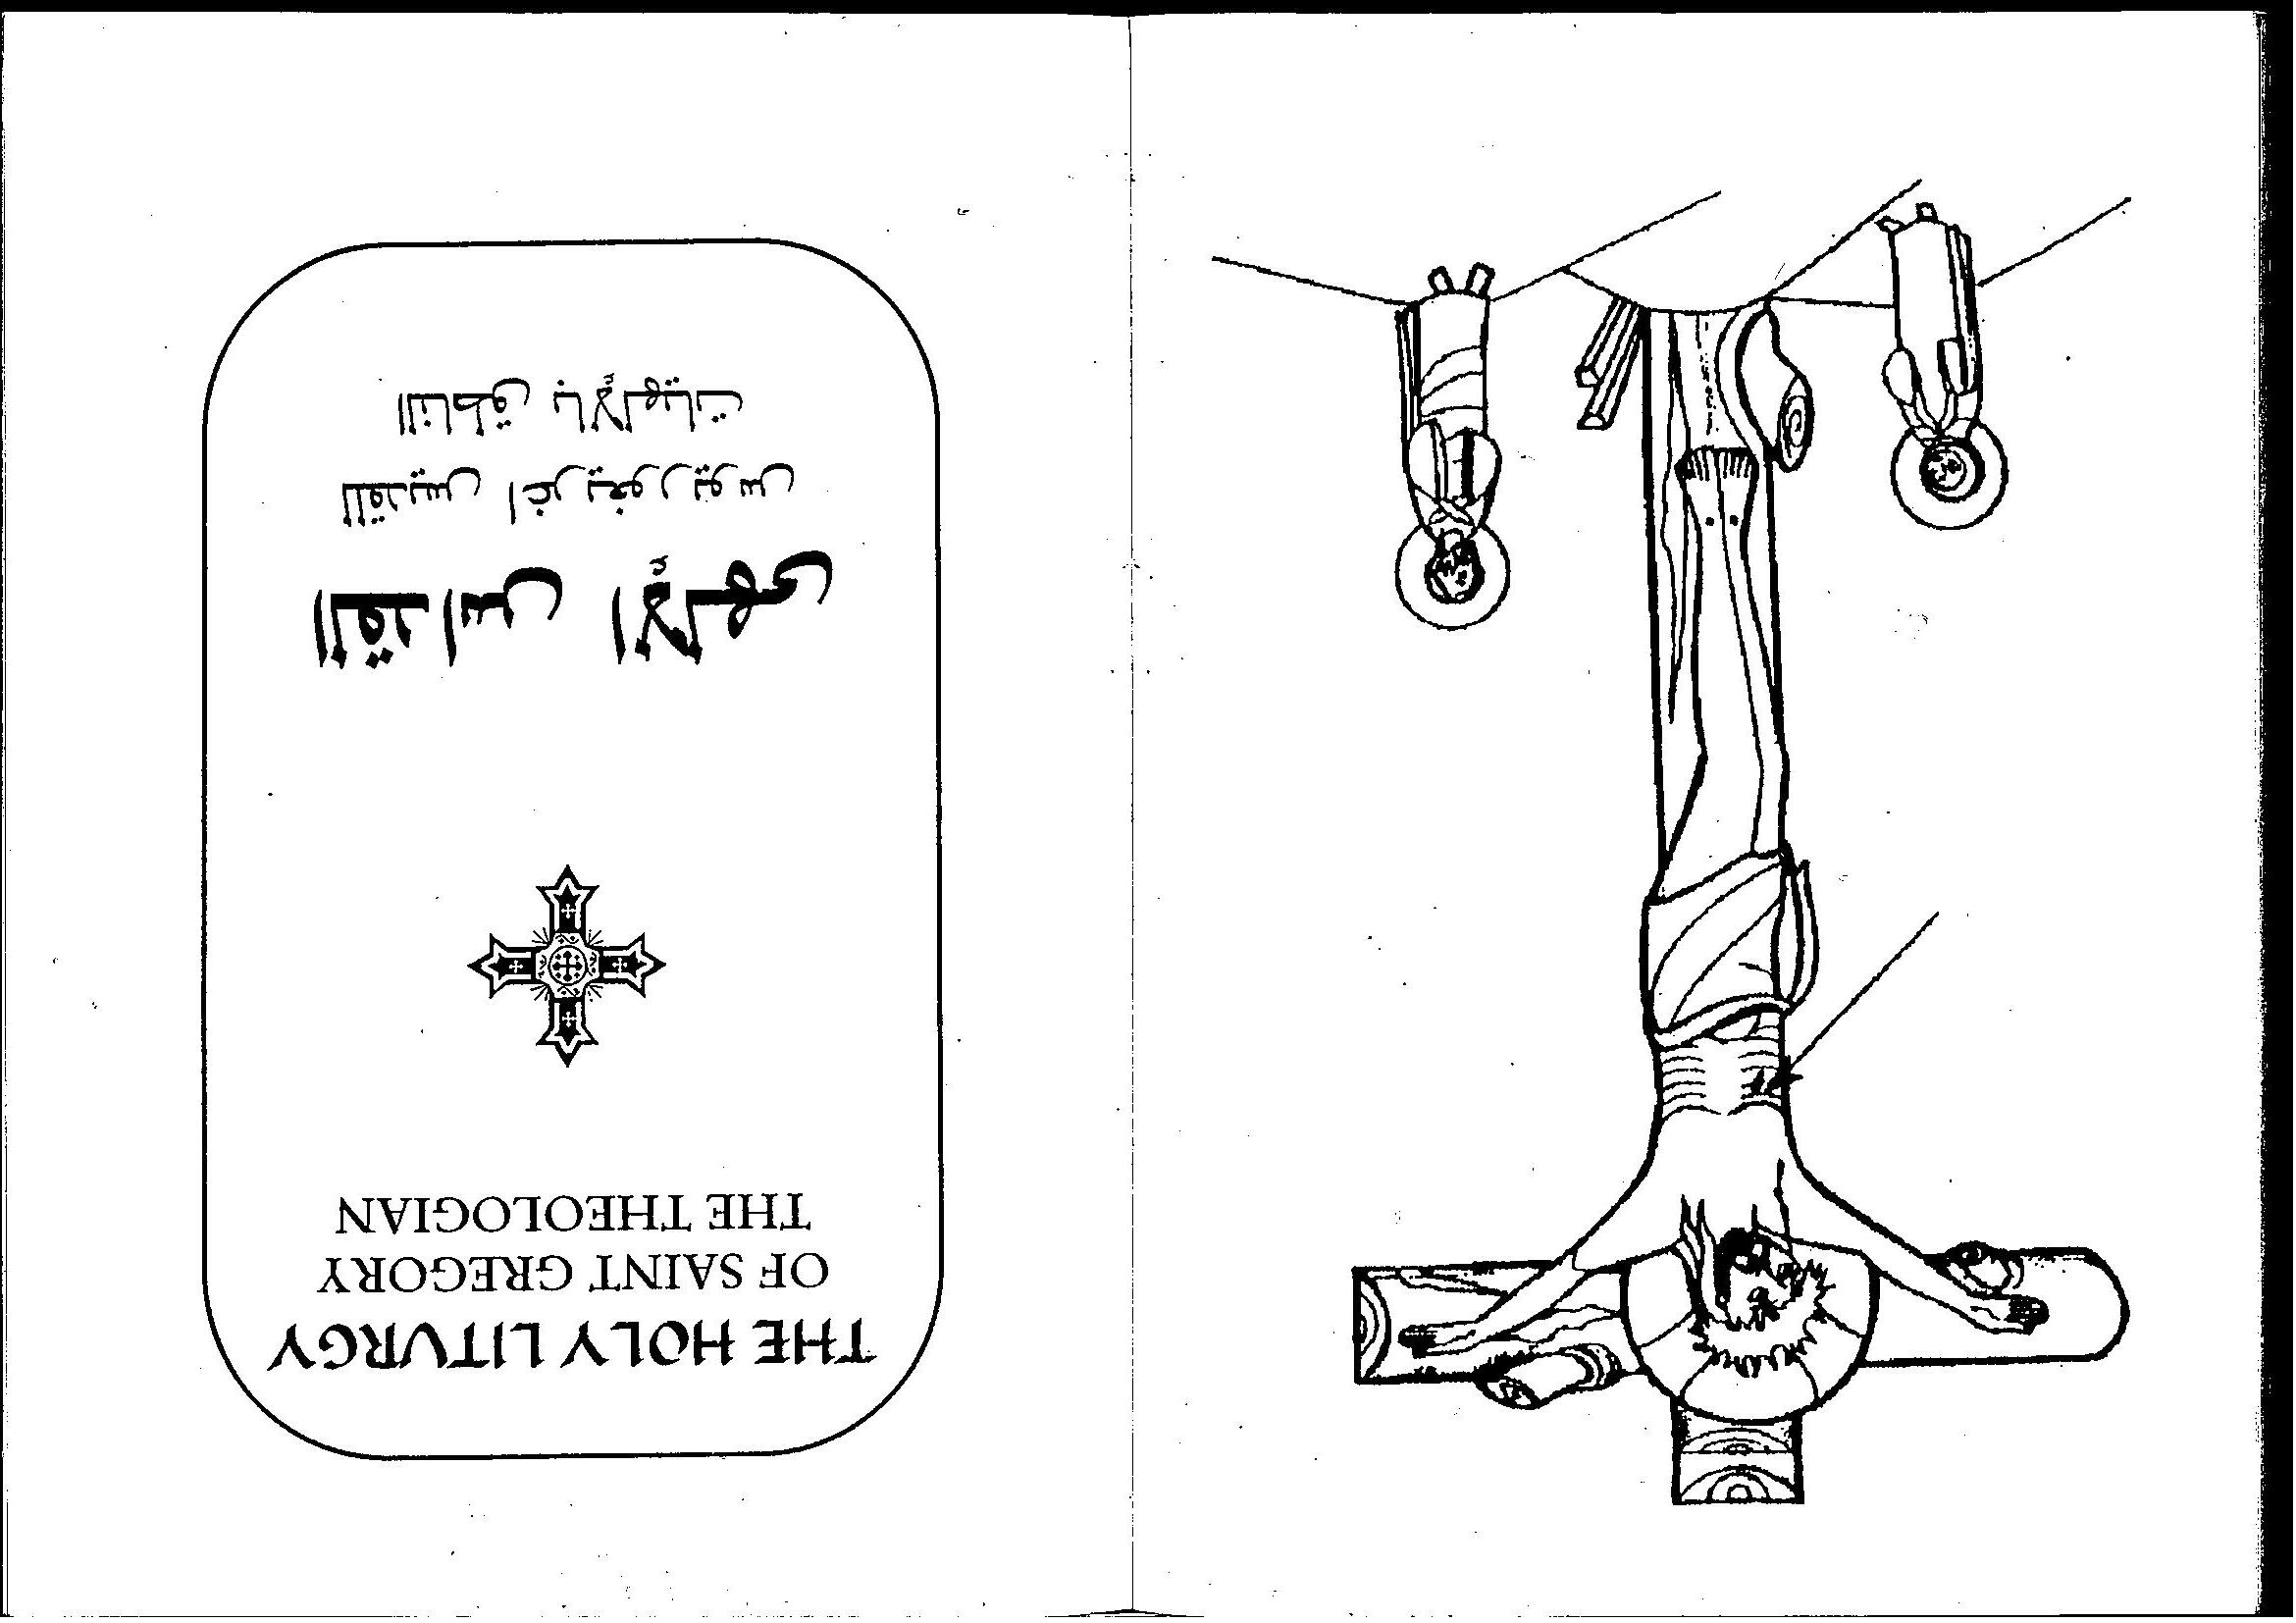 THE HOLY LITURGY
OF SAINT GREGORY
THE THEOLOGIAN
القداس الإلهى
للقديس اغريغوريوس
الناطق بالإلهيات